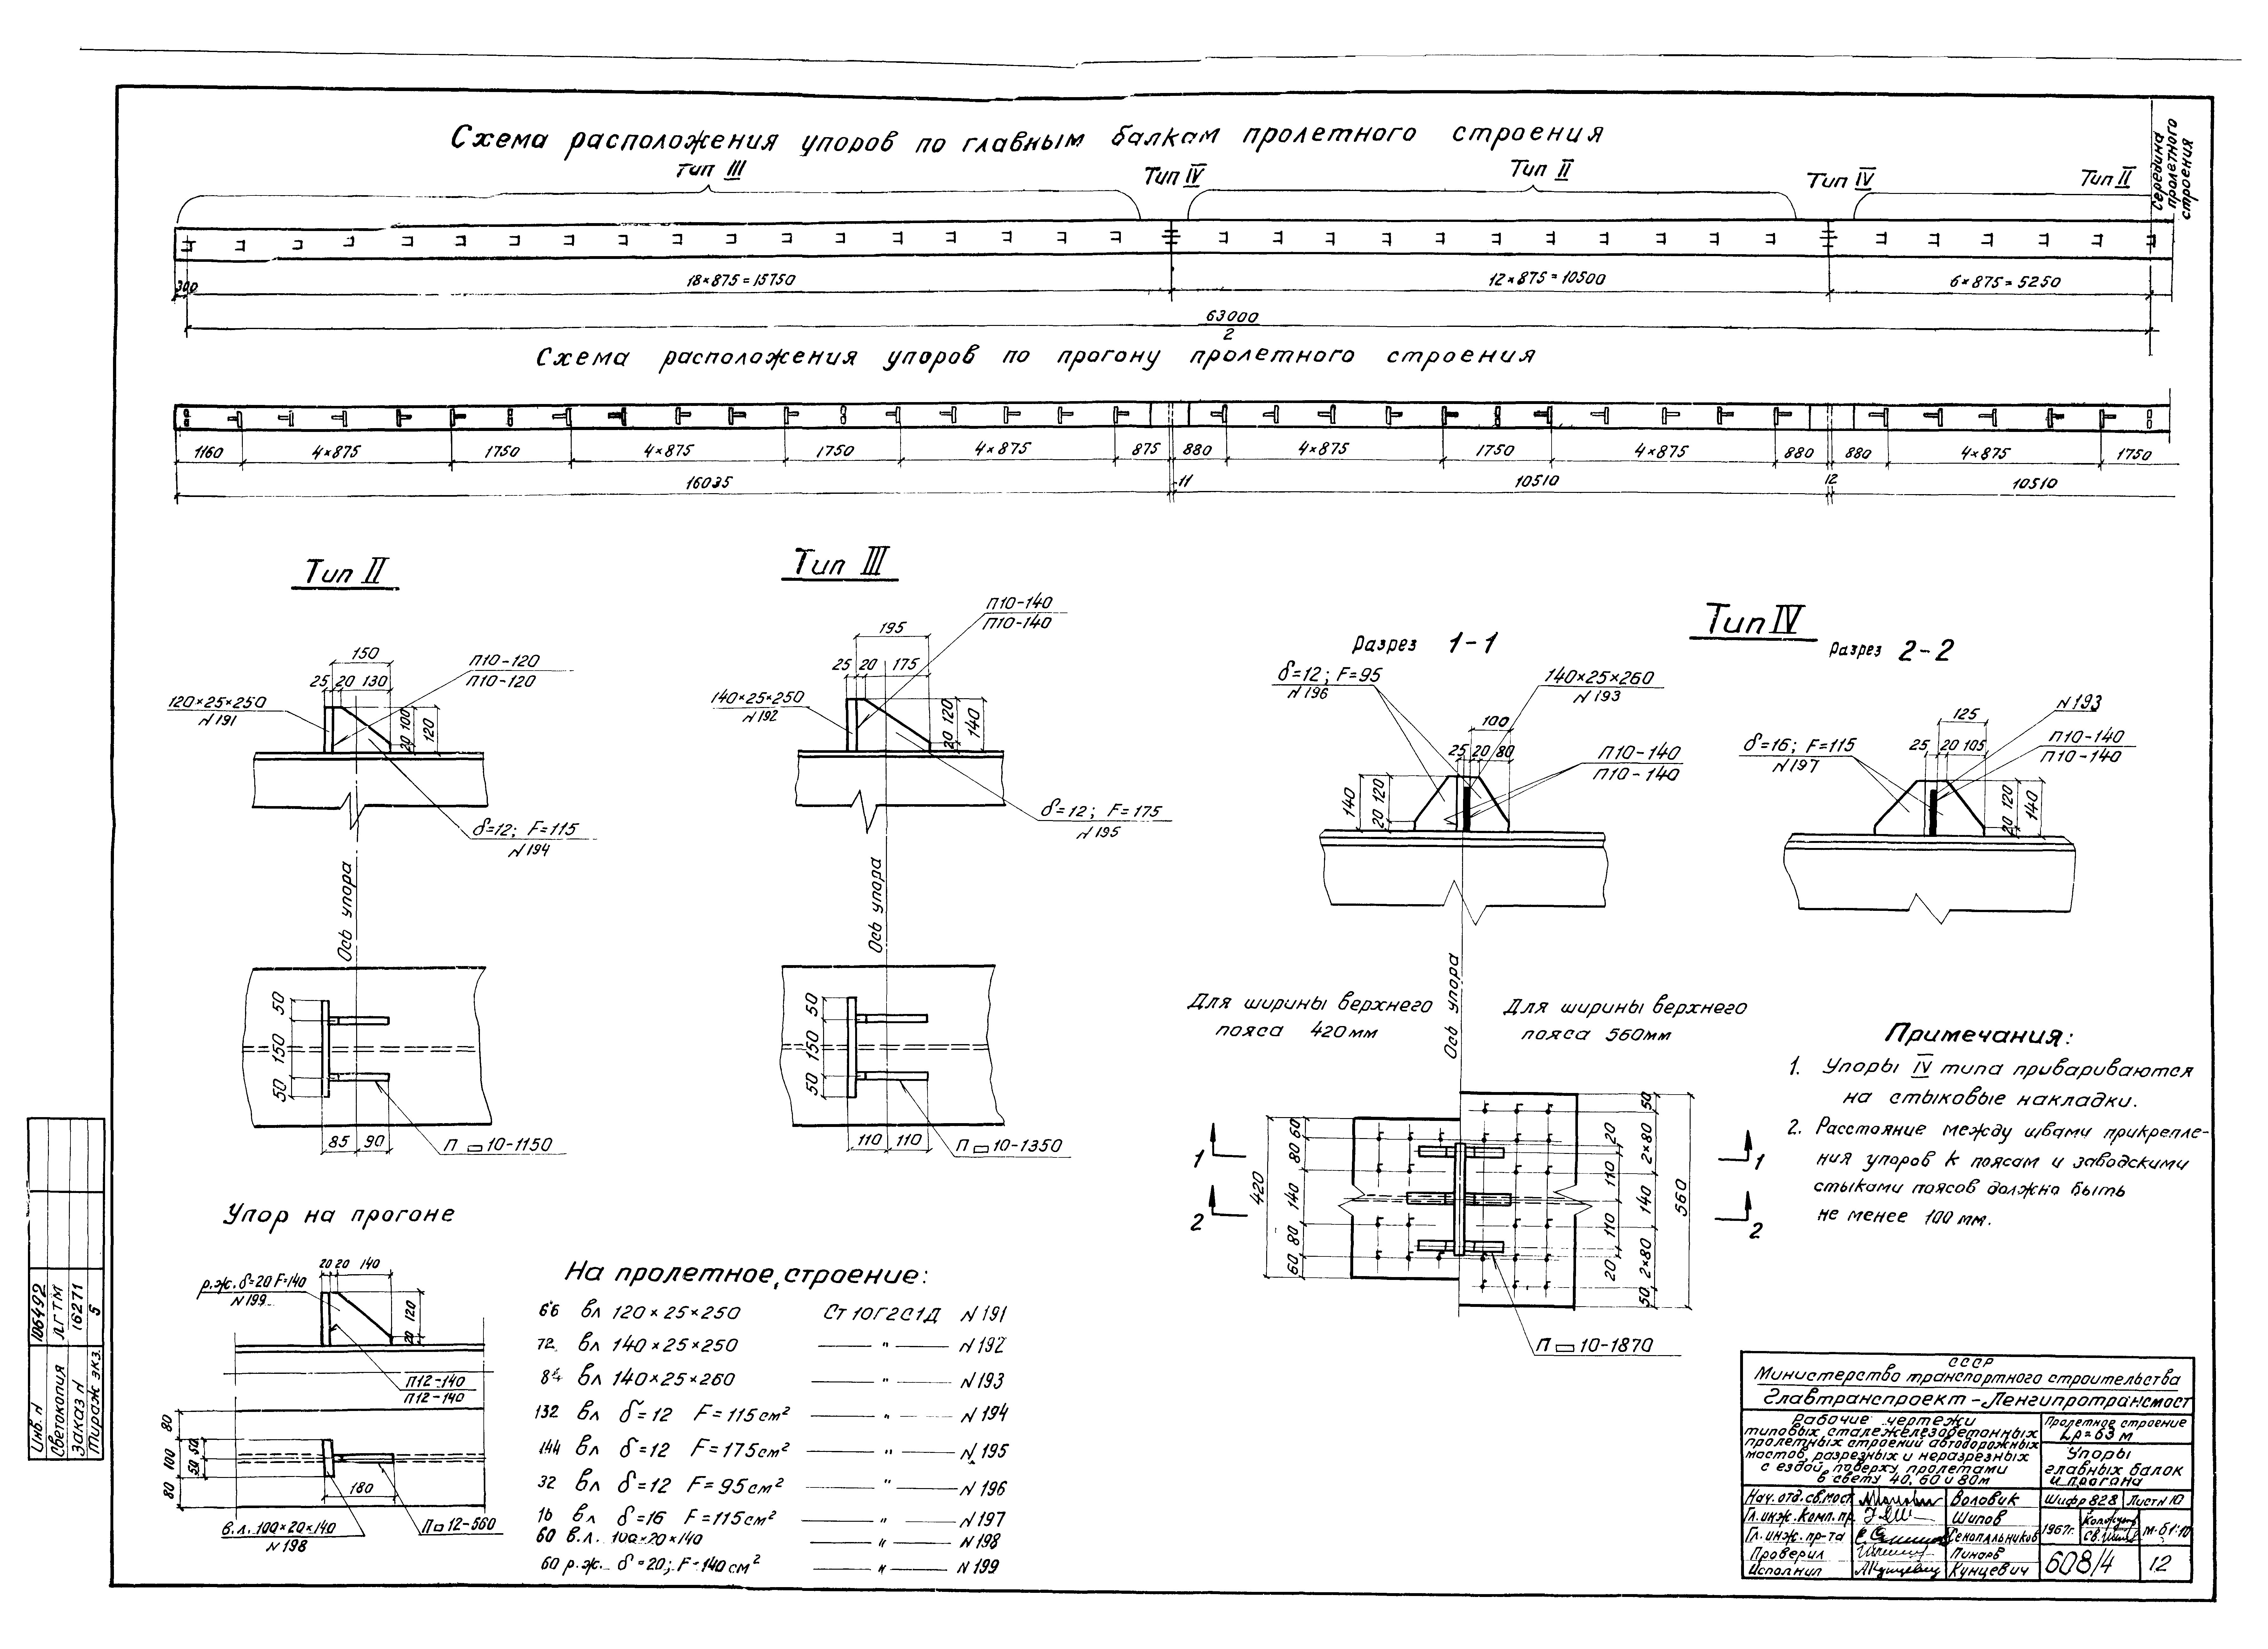 Схема расположения упоров по главным балкам пролетного строения
Тип III
Тип IV
Тип II
Тип IV
Тип II
Середина пролетного строения
300
18×875=15750
12×875=10500
6×875=5250
63000
2
Схема расположения упоров по прогону пролетного строения
1160 4×875 1750 4×875 1750 4×875 875 880 4×875 1750 4×875 880 880 4×875 1750
16035 11 10510 12 10510
Тип II
150
25 20 130
П10-120
П10-120
120×25×250
N191
20 100
120
δ=12; F=115
N194
Ось упора
50 150 50
85 90
П 10-1150
Тип III
195
25 20 175
П10-140
П10-140
140×25×250
N192
20 120
140
δ=12; F=175
N195
Ось упора
50 150 50
110 110
П 10-1350
Тип IV
Разрез 1-1
δ=12; F=95
N196
140×25×260
N193
100
25 20 80
П10-140
П10-140
140
20 120
Разрез 2-2
N193
125
25 20 105
δ=16; F=115
N197
П10-140
П10-140
20 120
140
Ось упора
Для ширины верхнего
пояса 420мм
Для ширины верхнего
пояса 560мм
420
60 80 140 80 60
20 110 110 20
50 2×80 140 2×80 50
560
1 1
2 2
П 10-1870
Примечания:
1. Упоры IV типа привариваются
на стыковые накладки.
2. Расстояние между швами прикрепле-
ния упоров к поясам и заводскими
стыками поясов должно быть
не менее 100 мм.
Упор на прогоне
20 20 140
р.ж. δ=20 F=140
N199
20 120
П12-140
П12-140
80 100 80
50 50
180
в.л. 100×20×140
N198
П 12-560
На пролетное строение:
66 вл 120×25×250 Ст 10Г2С1Д N191
72 вл 140×25×250 —〃— N192
84 вл 140×25×260 —〃— N193
132 вл δ=12 F=115см² —〃— N194
144 вл δ=12 F=175см² —〃— N195
32 вл δ=12 F=95см² —〃— N196
16 вл δ=16 F=115см² —〃— N197
60 в.л. 100×20×140 —〃— N198
60 р.ж. δ=20; F=140см² —〃— N199
Инв. N 106492
Светокопия ЛГТМ
Заказ N 16271
Тираж экз. 5
СССР
Министерство транспортного строительства
Главтранспроект-Ленгипротрансмост
Рабочие чертежи
типовых сталежелезобетонных
пролетных строений автодорожных
мостов, разрезных и неразрезных
с ездой поверху пролетами
в свету 40, 60 и 80м
Пролетное строение
Lр=63м
Упоры
главных балок
и прогона
Нач. отд. св. мост Воловик
Гл. инж. комп. пр. Шипов
Гл. инж. пр-та
Проверил
Исполнил Кунцевич
Шифр 828 Лист N10
1967г. М-б 1:10
608/4 12